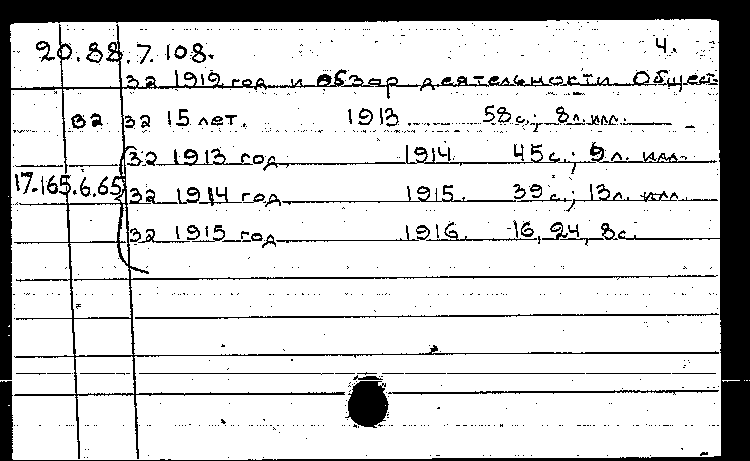 20.88.7.108. 4.
за 1912 год и обзор деятельности Общест
за за 15 лет. 1913 58 с.; 8 л. илл.
за 1913 год. 1914. 45 с.; 9 л. илл.
17.165.6.65 за 1914 год. 1915. 39 с.; 13 л. илл.
за 1915 год 1916. 16, 24, 8 с.